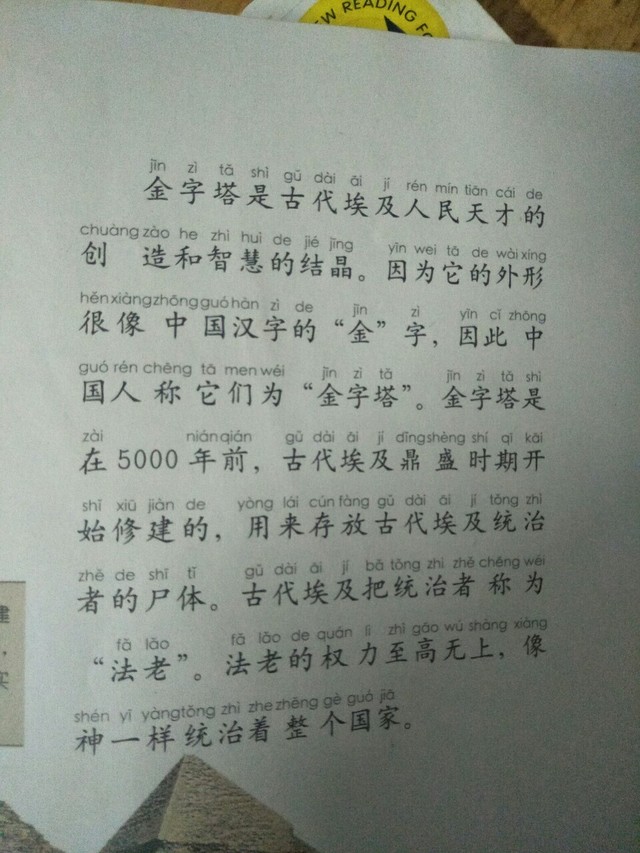 EW READING FO
jīn zì tǎ shì gǔ dài āi jí rén mín tiān cái de
金字塔是古代埃及人民天才的
chuàng zào he zhì huì de jié jīng yīn wei tā de wài xíng
创造和智慧的结晶。因为它的外形
hěn xiàng zhōng guó hàn zì de jīn zì yīn cǐ zhōng
很像中国汉字的“金”字，因此中
guó rén chēng tā men wéi jīn zì tǎ jīn zì tǎ shì
国人称它们为“金字塔”。金字塔是
zài nián qián gǔ dài āi jí dǐng shèng shí qī kāi
在5000年前，古代埃及鼎盛时期开
shǐ xiū jiàn de yòng lái cún fàng gǔ dài āi jí tǒng zhì
始修建的，用来存放古代埃及统治
zhě de shī tǐ gǔ dài āi jí bǎ tǒng zhì zhě chēng wéi
者的尸体。古代埃及把统治者称为
fǎ lǎo fǎ lǎo de quán lì zhì gāo wú shàng xiàng
“法老”。法老的权力至高无上，像
shén yī yàng tǒng zhì zhe zhěng gè guó jiā
神一样统治着整个国家。
建
，
实